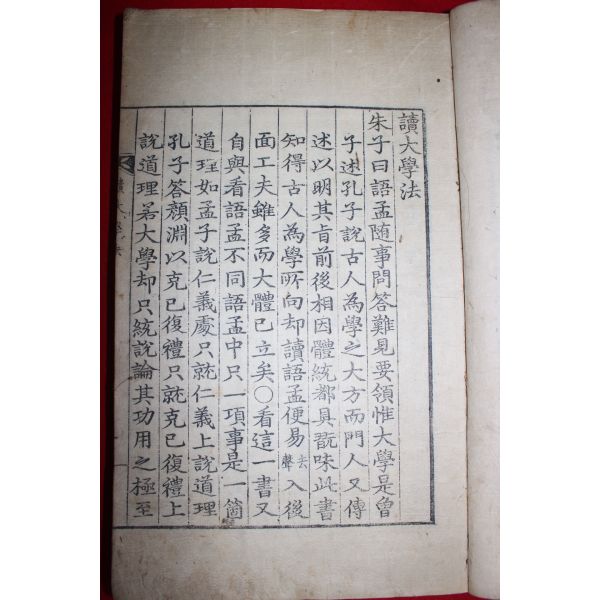 讀大學法
朱子曰語孟隨事問答難見要領惟大學是曾
子述孔子說古人為學之大方而門人又傳
述以明其旨前後相因體統都具翫味此書
知得古人為學所向却讀語孟便易去聲入後
面工夫雖多而大體已立矣○看這一書又
自與看語孟不同語孟中只一項事是一箇
道理如孟子說仁義處只就仁義上說道理
孔子答顏淵以克己復禮只就克己復禮上
說道理若大學却只統說論其功用之極至
讀大學法